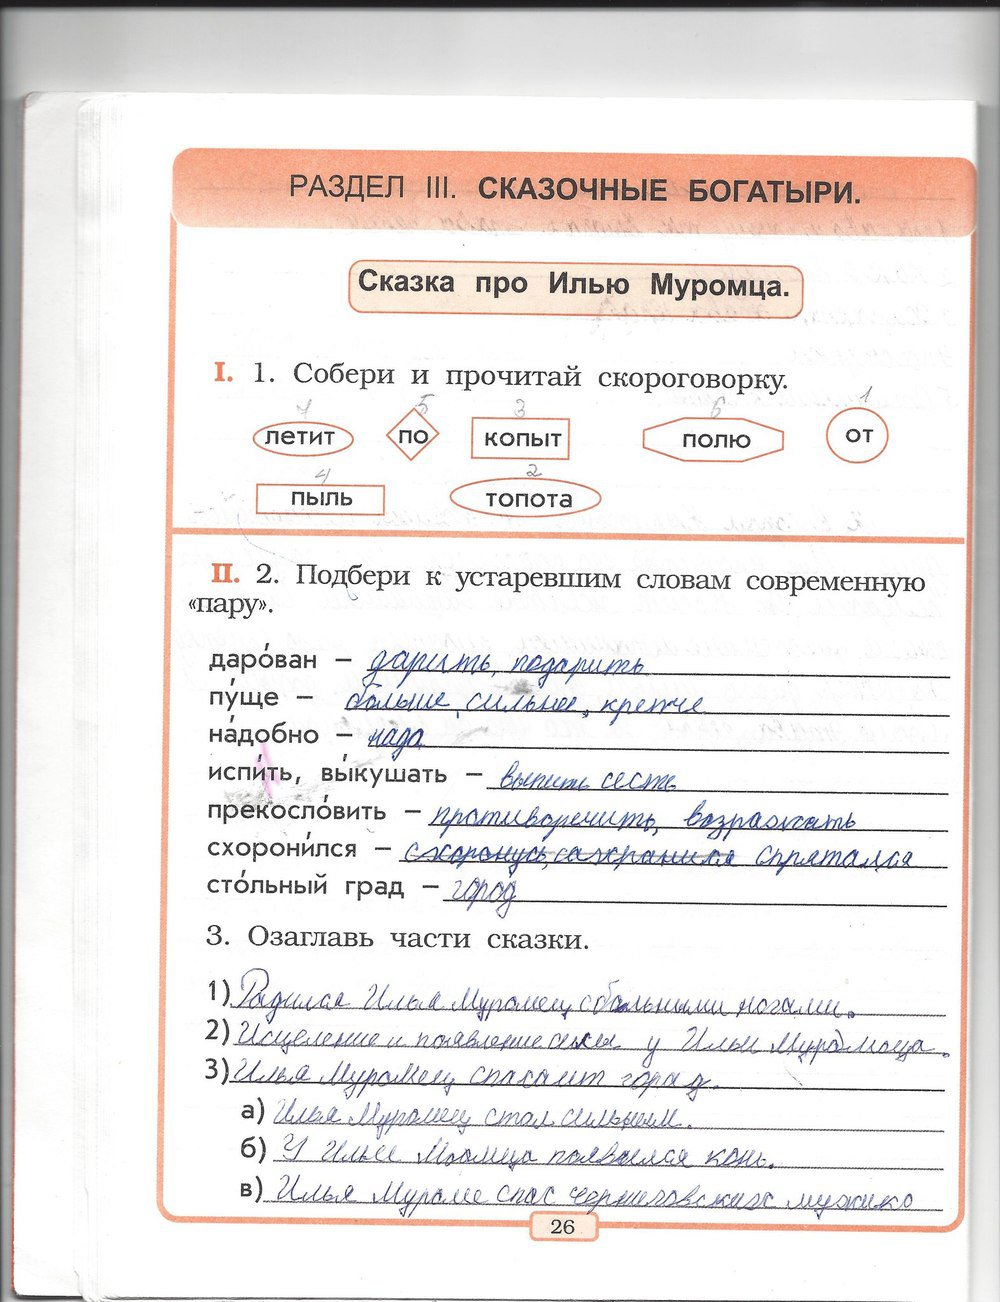 РАЗДЕЛ III. СКАЗОЧНЫЕ БОГАТЫРИ.
Сказка про Илью Муромца.
I. 1. Собери и прочитай скороговорку.
7 5 3 6 1
летит по копыт полю от
4 2
пыль топота
II. 2. Подбери к устаревшим словам современную
«пару».
даро́ван – дарить, подарить
пу́ще – больше, сильнее, крепче
на́добно – надо
испи́ть, вы́кушать – выпить сесть
прекосло́вить – противоречить, возражать
схорони́лся – схоронусь, сохранился спрятался
сто́льный град – город
3. Озаглавь части сказки.
1) Родился Илья Муромец с больными ногами.
2) Исцеление и появление силы у Ильи Муромца.
3) Илья Муромец спасает город.
а) Илья Муромец стал сильным.
б) У Ильи появился конь.
в) Илья Муроме спас черниговских мужико
26